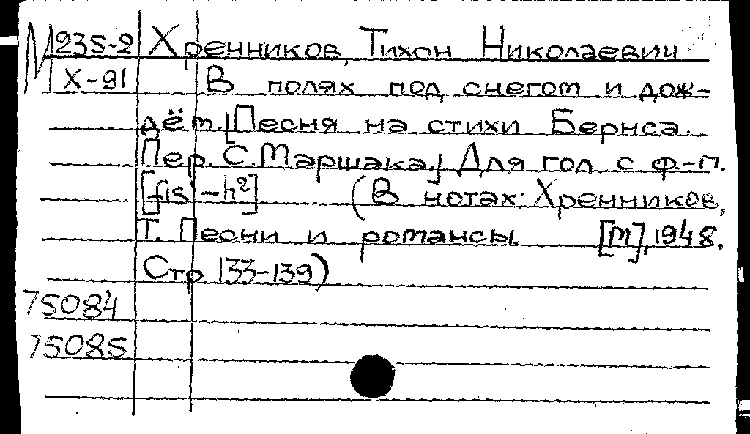 М 235-2 Хренников, Тихон Николаевич
X-91 В полях под снегом и дож-
дём. [Песня на стихи Бернса.
Пер. С. Маршака.] Для гол. с ф-п.
[fis¹-h²] (В нотах: Хренников,
Т. Песни и романсы. [М], 1948.
Стр 133-139)
75084
75085